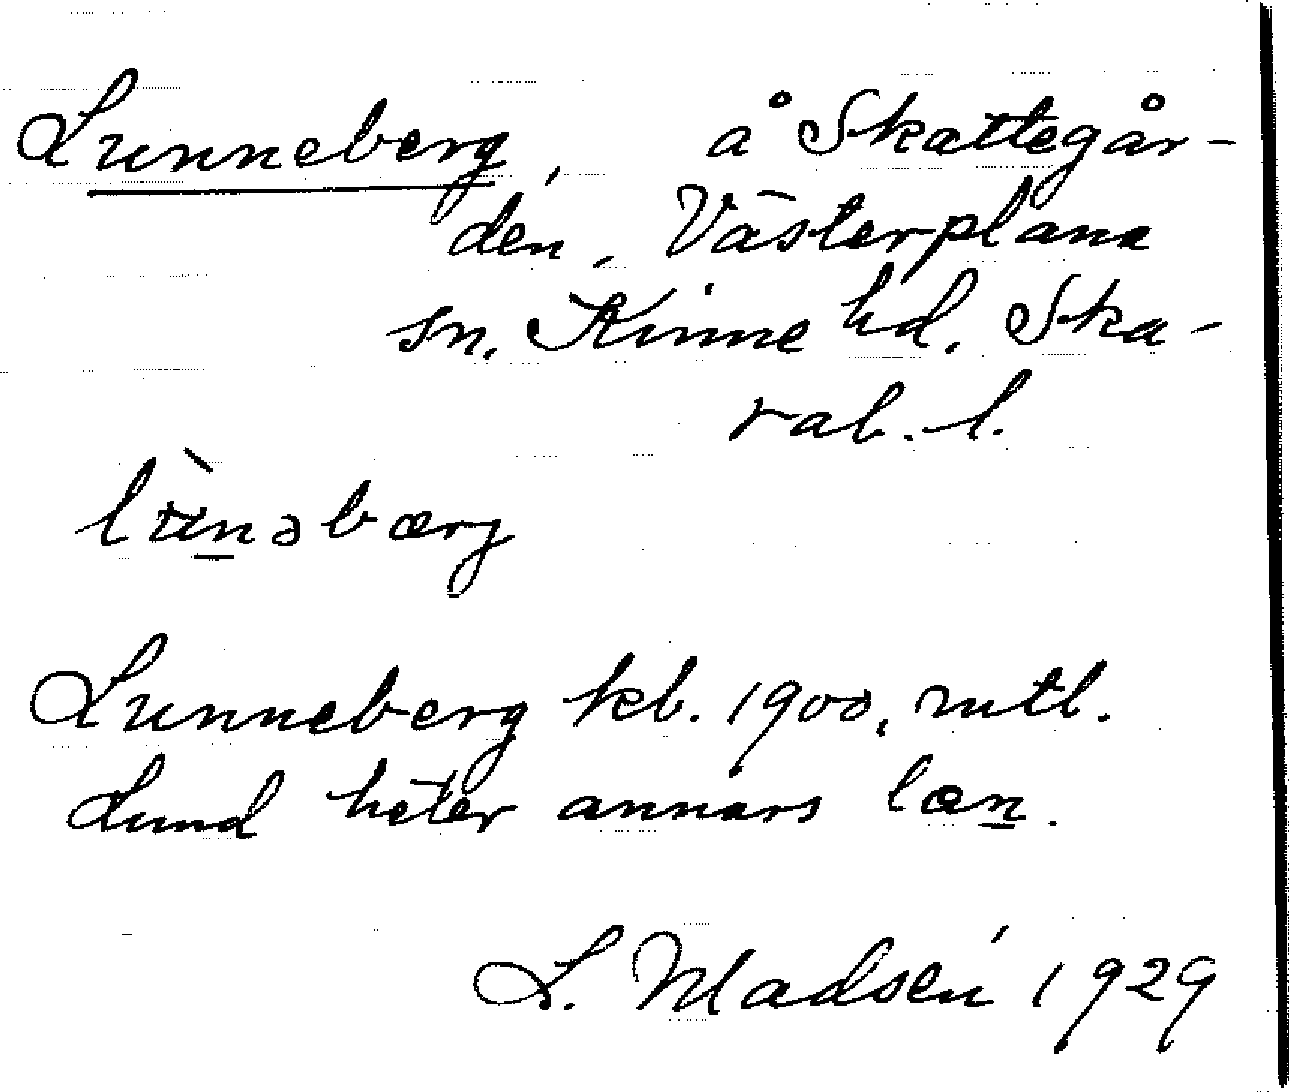 Lunneberg, å Skattegår-
den, Västerplana
sn, Kinne hd. Ska-
rab. l.
lùnəbærj
Lunneberg kb. 1900, mtl.
Lund heter annars læn.
L. Madsén 1929